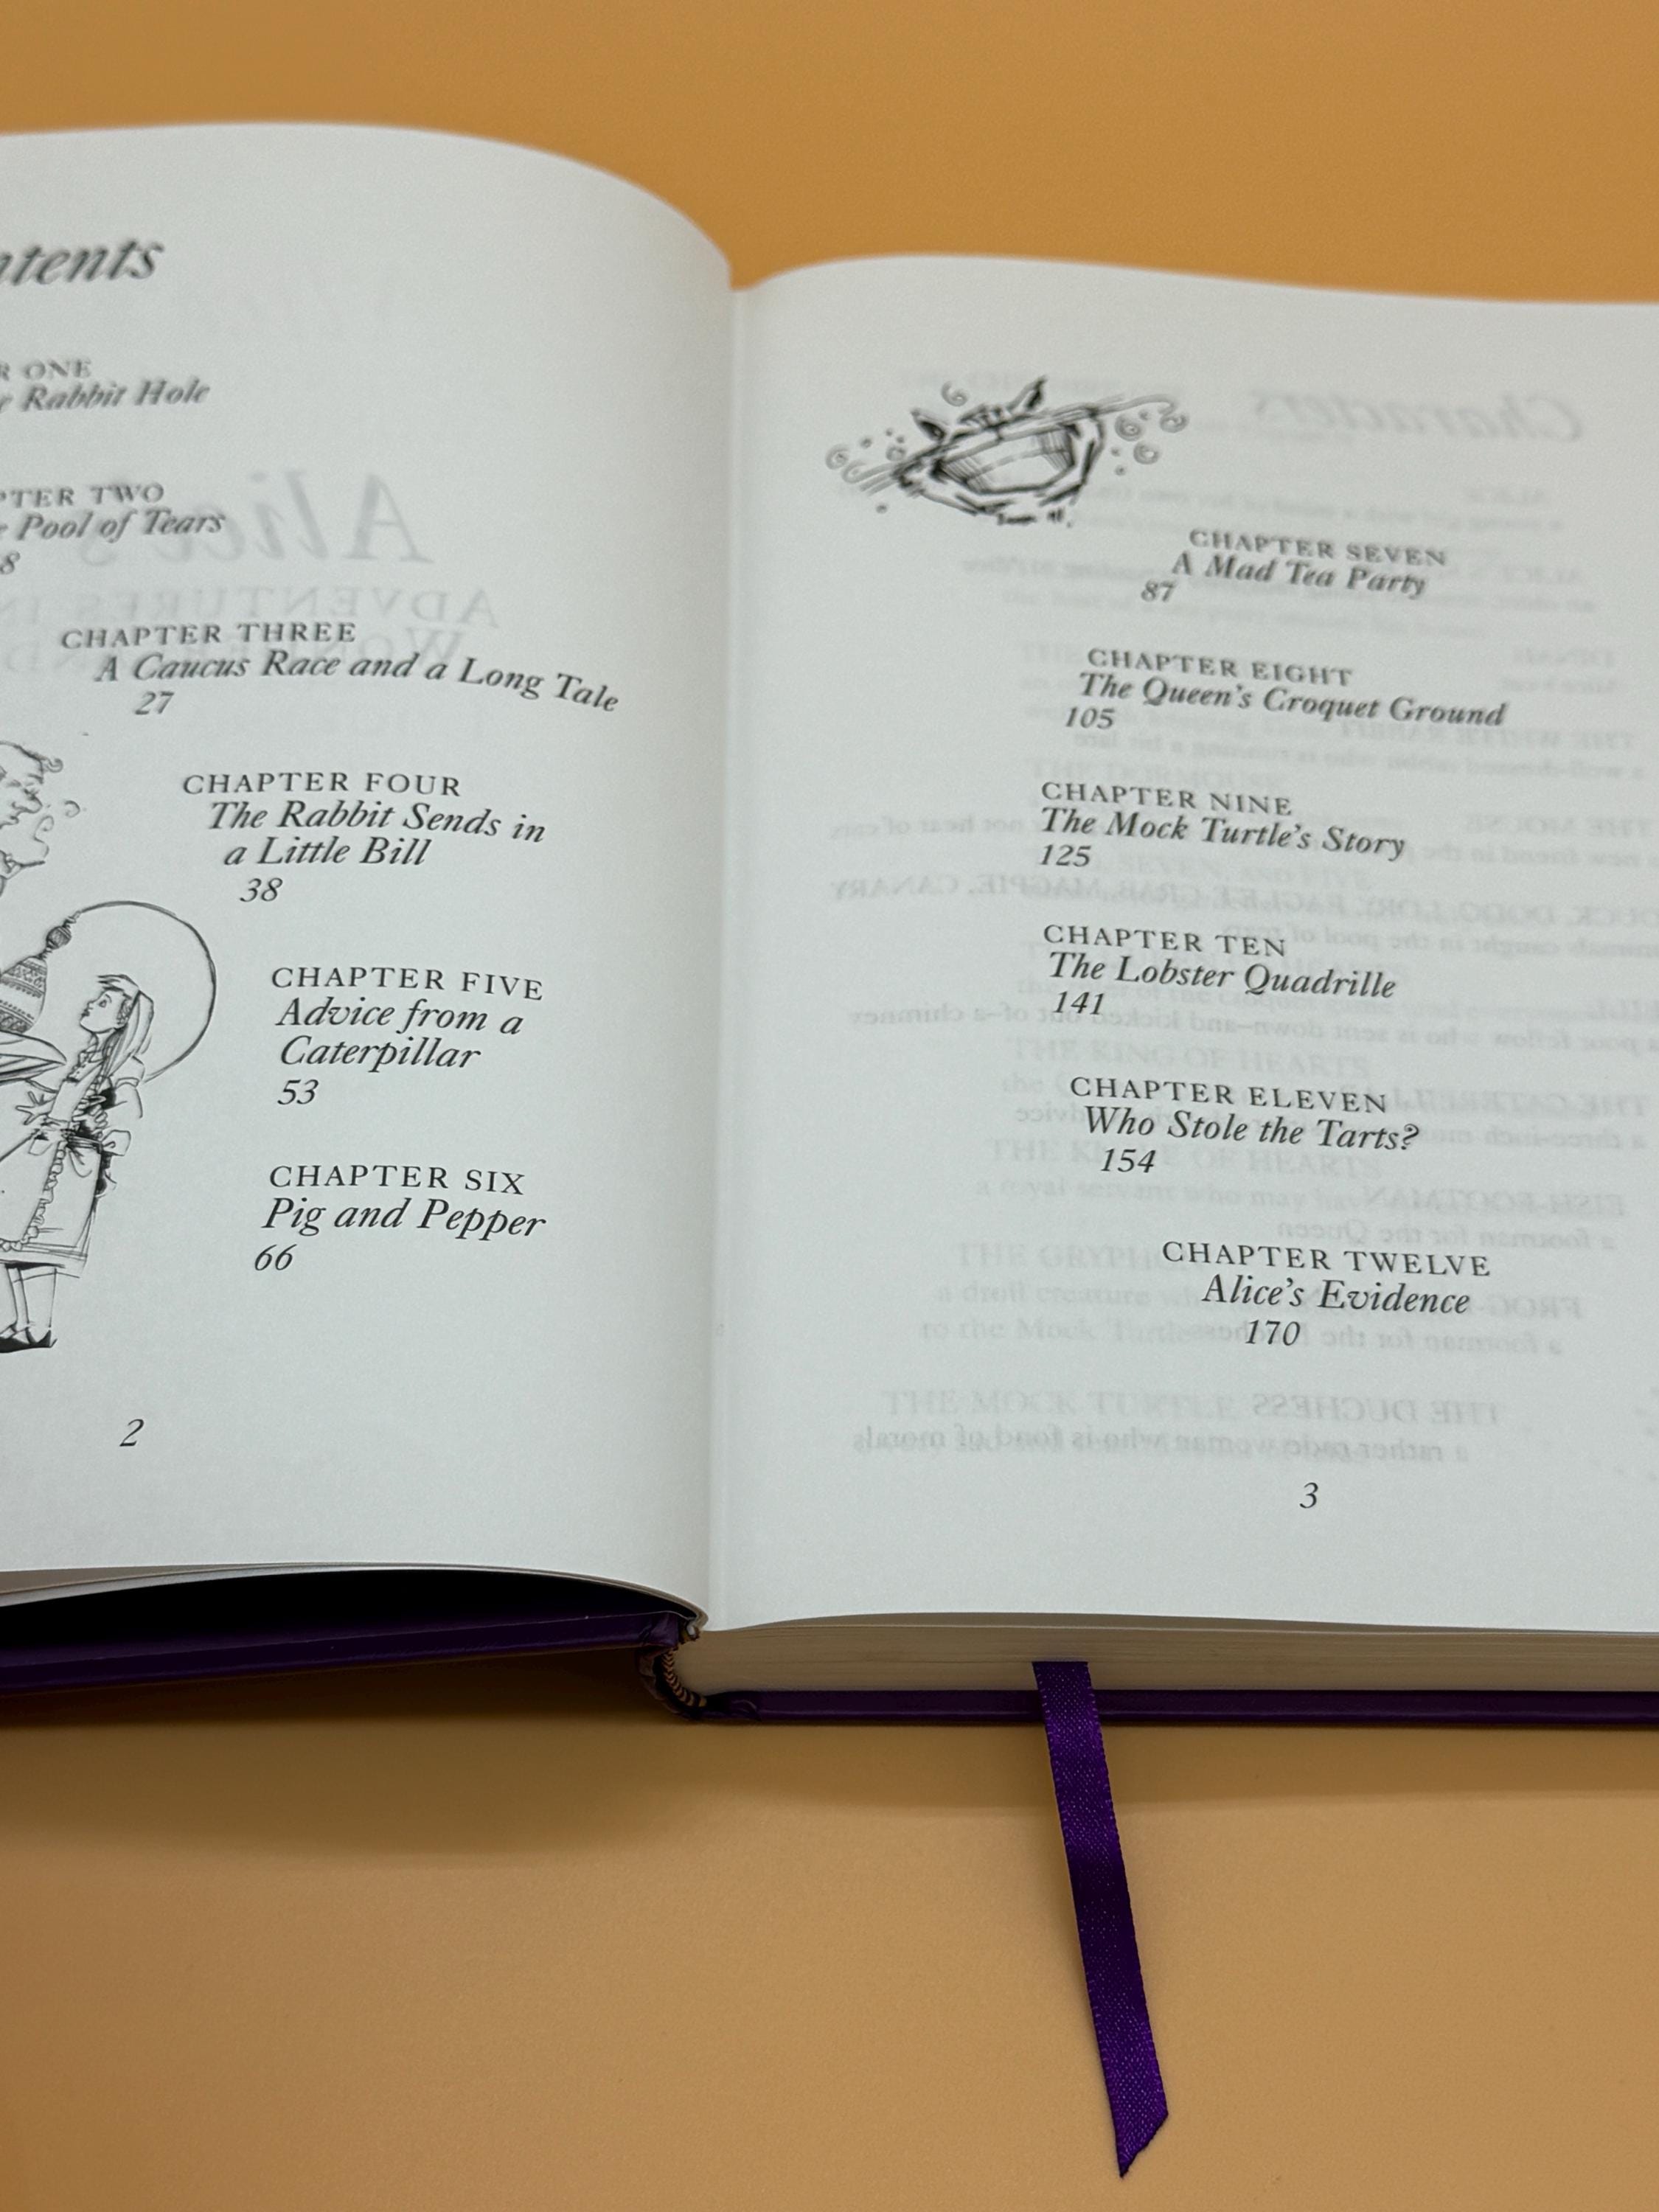 ntents
R ONE
Rabbit Hole
PTER TWO
Pool of Tears
8
CHAPTER THREE
A Caucus Race and a Long Tale
27
CHAPTER FOUR
The Rabbit Sends in
a Little Bill
38
CHAPTER FIVE
Advice from a
Caterpillar
53
CHAPTER SIX
Pig and Pepper
66
2
CHAPTER SEVEN
A Mad Tea Party
87
CHAPTER EIGHT
The Queen's Croquet Ground
105
CHAPTER NINE
The Mock Turtle's Story
125
CHAPTER TEN
The Lobster Quadrille
141
CHAPTER ELEVEN
Who Stole the Tarts?
154
CHAPTER TWELVE
Alice's Evidence
170
3